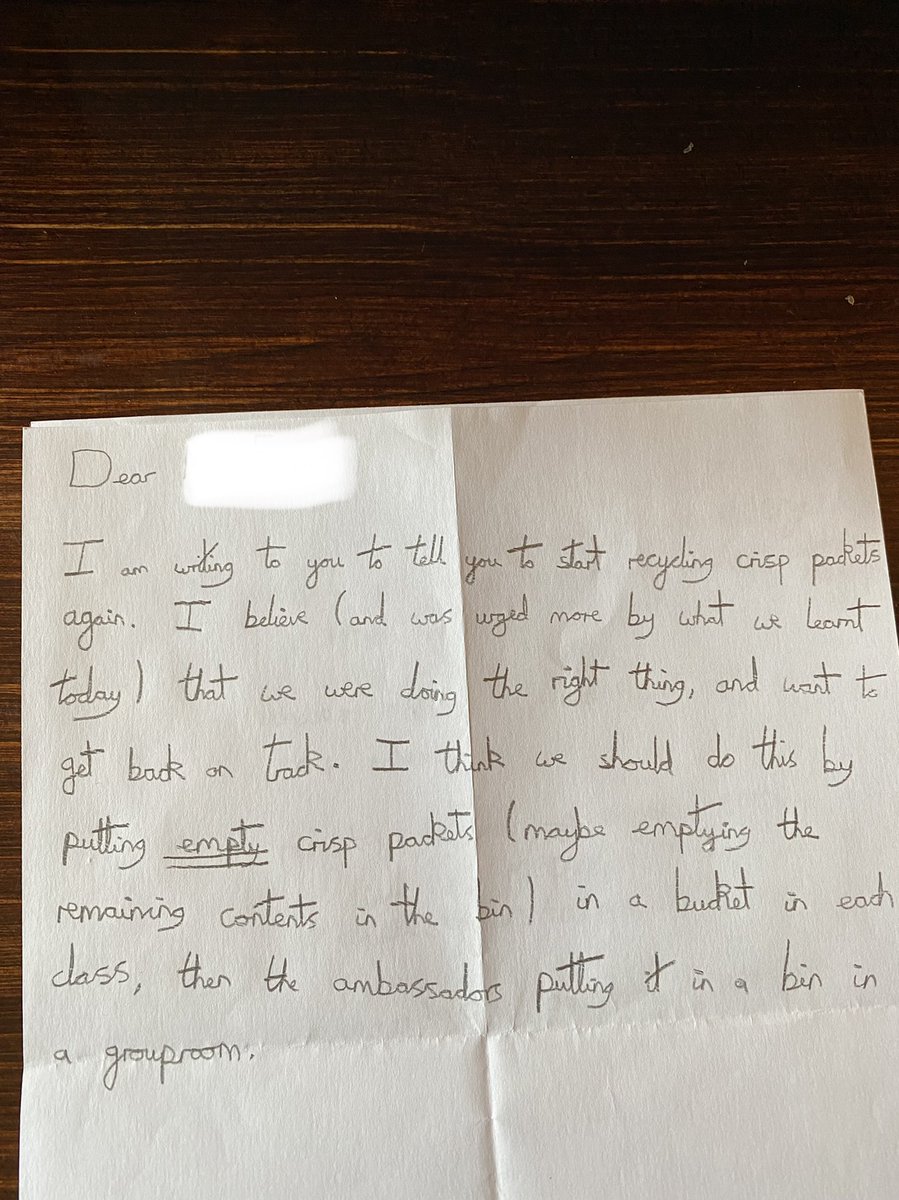 Dear
I am writing to you to tell you to start recycling crisp packets
again. I believe (and was urged more by what we learnt
today) that we were doing the right thing, and want to
get back on track. I think we should do this by
putting empty crisp packets (maybe emptying the
remaining contents in the bin) in a bucket in each
class, then the ambassadors putting it in a bin in
a grouproom.